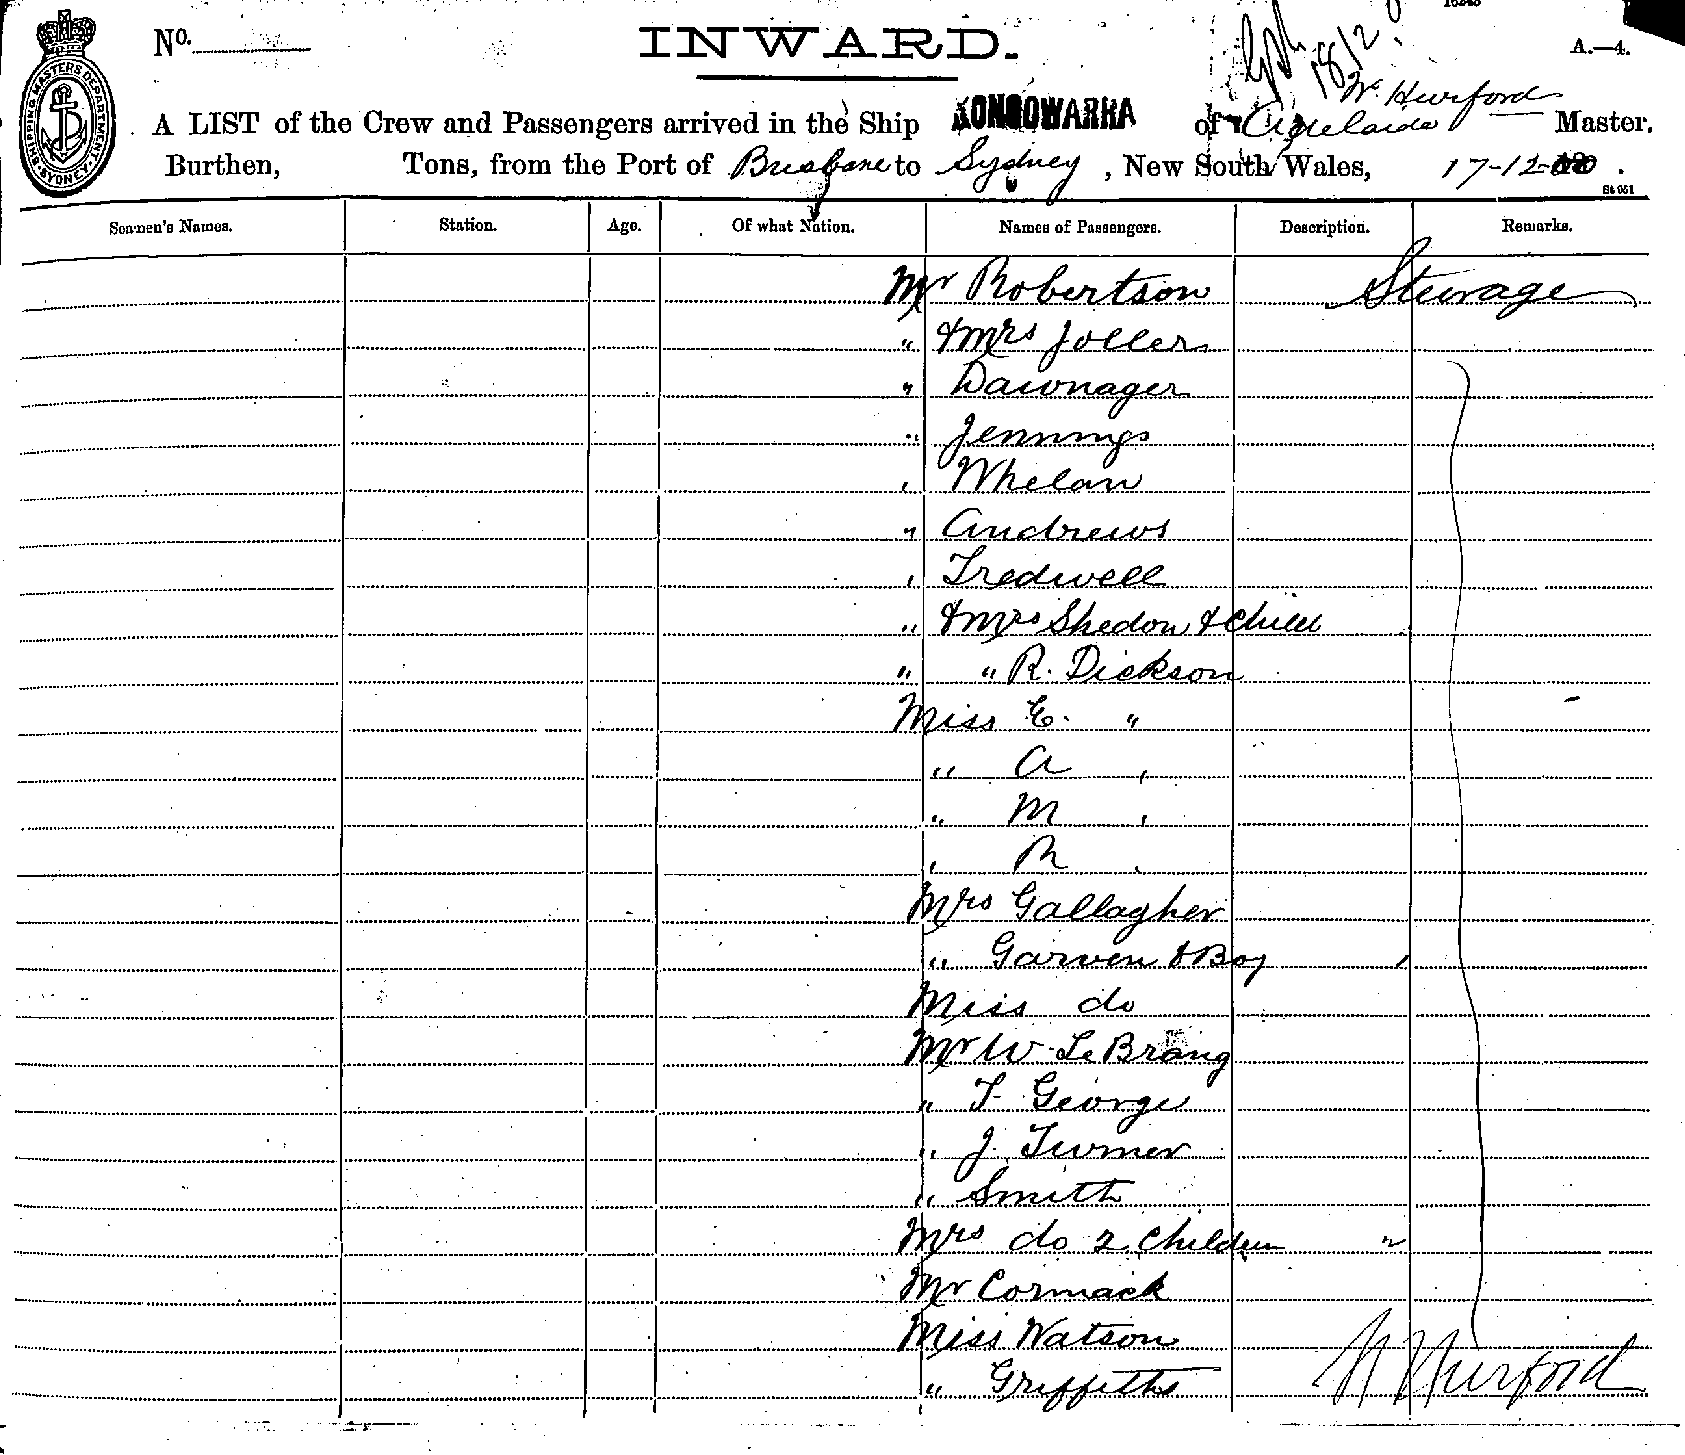 No.
INWARD.
A.—4.
W. Hurford
A LIST of the Crew and Passengers arrived in the Ship KONOOWARRA of Adelaide Master.
Burthen, Tons, from the Port of Brisbane to Sydney, New South Wales, 17-12-
SHIPPING MASTERS DEPARTMENT SYDNEY
Seamen's Names. Station. Age. Of what Nation. Names of Passengers. Description. Remarks.
Mr Robertson Steerage
" & Mrs Joller
" Dawnager
" Jennings
" Whelan
" Andrews
" Tredwell
" & Mrs Shedon & Child
" " R. Dickson
Miss E. "
" A "
" M "
" R "
Mrs Gallagher
" Garven & Boy
Miss do
Mr W. Le Brang
" T. George
" J. Turner
" Smith
Mrs do 2 Children "
Mr Cormack
Miss Watson
" Griffiths W Hurford